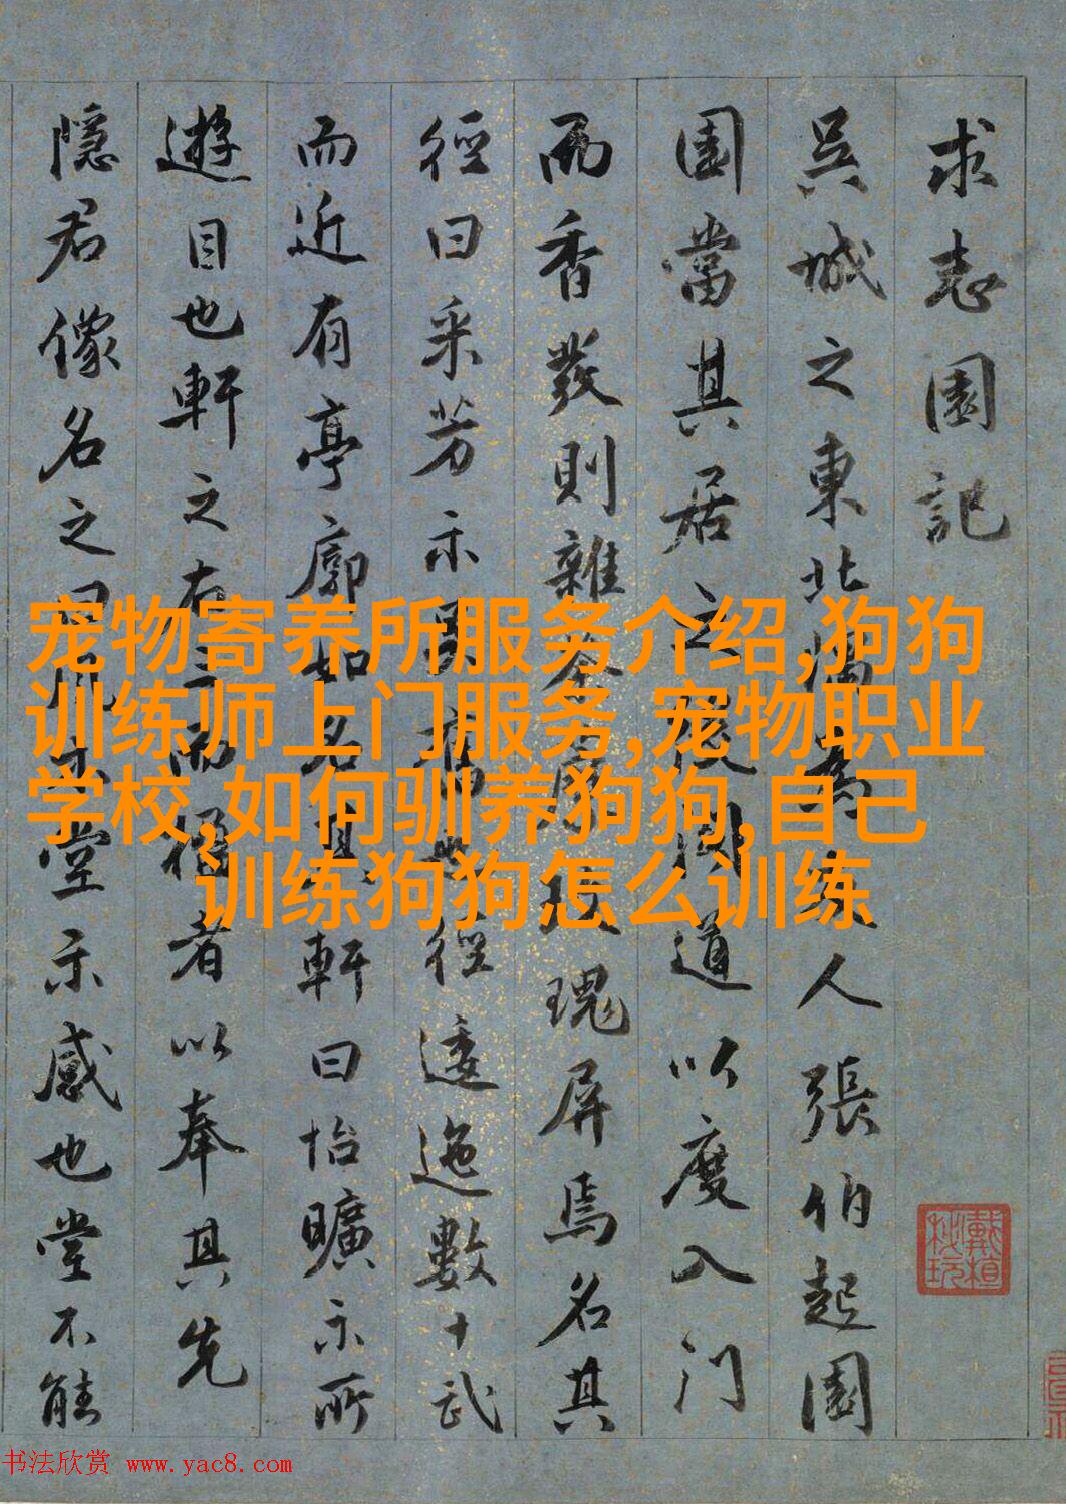 求志園記
吳城之東北隅為人張伯起園
園當其居之後道以度入門
而香發則雜荼玫瑰屏焉名其
徑曰采芳示徑逶迤數十武
而近有亭廓如名其軒曰怡曠示所
遊目也軒之右三而楹者以奉其先
隱君像名之曰風木堂示感也堂不能
宠物寄养所服务介绍,狗狗
训练师上门服务,宠物职业
学校,如何驯养狗狗,自己
训练狗狗怎么训练
书法欣赏 www.yac8.com